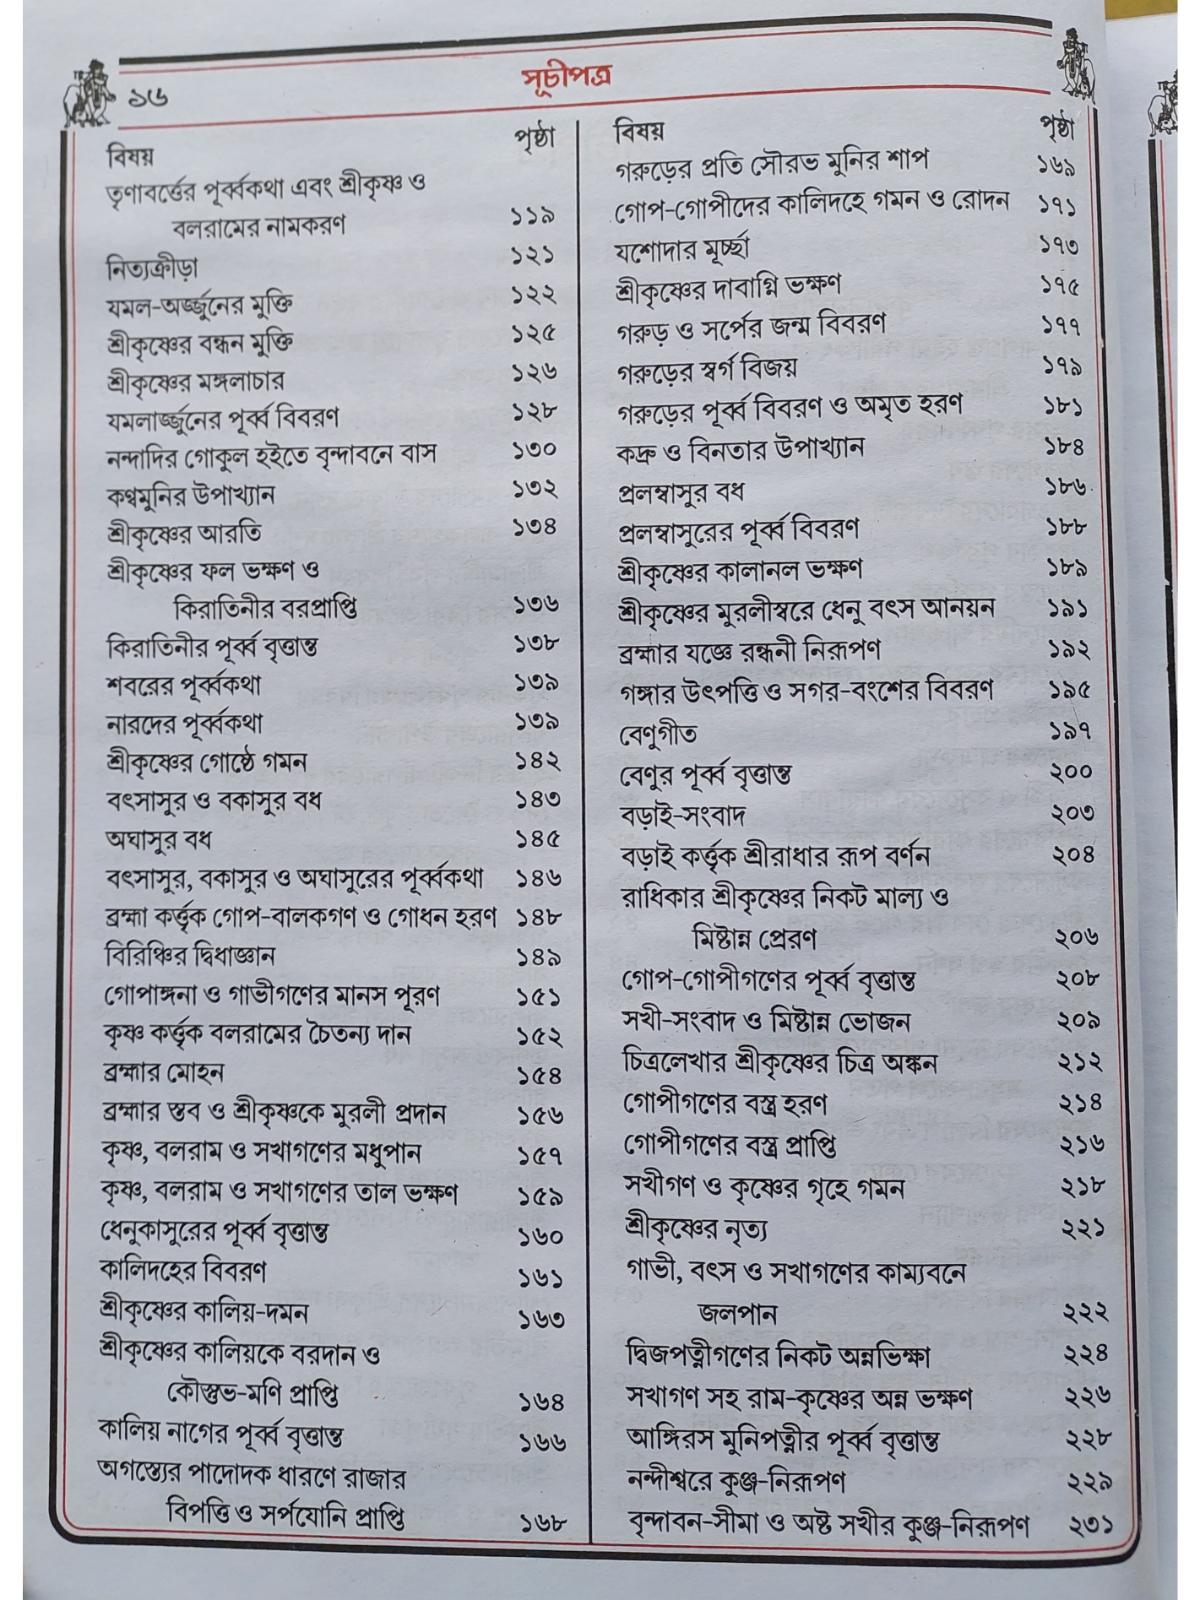 ১৬
সূচীপত্র
বিষয় পৃষ্ঠা
তৃণাবর্ত্তের পূর্ব্বকথা এবং শ্রীকৃষ্ণ ও
বলরামের নামকরণ ১১৯
নিত্যক্রীড়া ১২১
যমল-অর্জ্জুনের মুক্তি ১২২
শ্রীকৃষ্ণের বন্ধন মুক্তি ১২৫
শ্রীকৃষ্ণের মঙ্গলাচার ১২৬
যমলার্জ্জুনের পূর্ব্ব বিবরণ ১২৮
নন্দাদির গোকুল হইতে বৃন্দাবনে বাস ১৩০
কণ্বমুনির উপাখ্যান ১৩২
শ্রীকৃষ্ণের আরতি ১৩৪
শ্রীকৃষ্ণের ফল ভক্ষণ ও
কিরাতিনীর বরপ্রাপ্তি ১৩৬
কিরাতিনীর পূর্ব্ব বৃত্তান্ত ১৩৮
শবরের পূর্ব্বকথা ১৩৯
নারদের পূর্ব্বকথা ১৩৯
শ্রীকৃষ্ণের গোষ্ঠে গমন ১৪২
বৎসাসুর ও বকাসুর বধ ১৪৩
অঘাসুর বধ ১৪৫
বৎসাসুর, বকাসুর ও অঘাসুরের পূর্ব্বকথা ১৪৬
ব্রহ্মা কর্ত্তৃক গোপ-বালকগণ ও গোধন হরণ ১৪৮
বিরিঞ্চির দ্বিধাজ্ঞান ১৪৯
গোপাঙ্গনা ও গাভীগণের মানস পূরণ ১৫১
কৃষ্ণ কর্ত্তৃক বলরামের চৈতন্য দান ১৫২
ব্রহ্মার মোহন ১৫৪
ব্রহ্মার স্তব ও শ্রীকৃষ্ণকে মুরলী প্রদান ১৫৬
কৃষ্ণ, বলরাম ও সখাগণের মধুপান ১৫৭
কৃষ্ণ, বলরাম ও সখাগণের তাল ভক্ষণ ১৫৯
ধেনুকাসুরের পূর্ব্ব বৃত্তান্ত ১৬০
কালিদহের বিবরণ ১৬১
শ্রীকৃষ্ণের কালিয়-দমন ১৬৩
শ্রীকৃষ্ণের কালিয়কে বরদান ও
কৌস্তুভ-মণি প্রাপ্তি ১৬৪
কালিয় নাগের পূর্ব্ব বৃত্তান্ত ১৬৬
অগস্ত্যের পাদোদক ধারণে রাজার
বিপত্তি ও সর্পযোনি প্রাপ্তি ১৬৮
বিষয় পৃষ্ঠা
গরুড়ের প্রতি সৌরভ মুনির শাপ ১৬৯
গোপ-গোপীদের কালিদহে গমন ও রোদন ১৭১
যশোদার মূর্চ্ছা ১৭৩
শ্রীকৃষ্ণের দাবাগ্নি ভক্ষণ ১৭৫
গরুড় ও সর্পের জন্ম বিবরণ ১৭৭
গরুড়ের স্বর্গ বিজয় ১৭৯
গরুড়ের পূর্ব্ব বিবরণ ও অমৃত হরণ ১৮১
কদ্রু ও বিনতার উপাখ্যান ১৮৪
প্রলম্বাসুর বধ ১৮৬
প্রলম্বাসুরের পূর্ব্ব বিবরণ ১৮৮
শ্রীকৃষ্ণের কালানল ভক্ষণ ১৮৯
শ্রীকৃষ্ণের মুরলীস্বরে ধেনু বৎস আনয়ন ১৯১
ব্রহ্মার যজ্ঞে রন্ধনী নিরূপণ ১৯২
গঙ্গার উৎপত্তি ও সগর-বংশের বিবরণ ১৯৫
বেণুগীত ১৯৭
বেণুর পূর্ব্ব বৃত্তান্ত ২০০
বড়াই-সংবাদ ২০৩
বড়াই কর্ত্তৃক শ্রীরাধার রূপ বর্ণন ২০৪
রাধিকার শ্রীকৃষ্ণের নিকট মাল্য ও
মিষ্টান্ন প্রেরণ ২০৬
গোপ-গোপীগণের পূর্ব্ব বৃত্তান্ত ২০৮
সখী-সংবাদ ও মিষ্টান্ন ভোজন ২০৯
চিত্রলেখার শ্রীকৃষ্ণের চিত্র অঙ্কন ২১২
গোপীগণের বস্ত্র হরণ ২১৪
গোপীগণের বস্ত্র প্রাপ্তি ২১৬
সখীগণ ও কৃষ্ণের গৃহে গমন ২১৮
শ্রীকৃষ্ণের নৃত্য ২২১
গাভী, বৎস ও সখাগণের কাম্যবনে
জলপান ২২২
দ্বিজপত্নীগণের নিকট অন্নভিক্ষা ২২৪
সখাগণ সহ রাম-কৃষ্ণের অন্ন ভক্ষণ ২২৬
আঙ্গিরস মুনিপত্নীর পূর্ব্ব বৃত্তান্ত ২২৮
নন্দীশ্বরে কুঞ্জ-নিরূপণ ২২৯
বৃন্দাবন-সীমা ও অষ্ট সখীর কুঞ্জ-নিরূপণ ২৩১